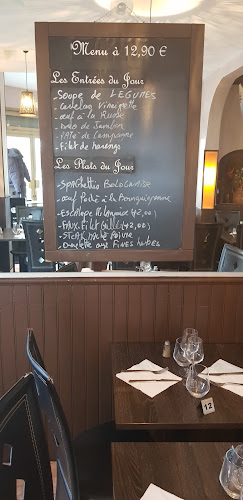 Menu à 12,90 €
Les Entrées du Jour
- Soupe de LEGUMES
- Vinaigrette
- œuf à la Russe
- de Jambon
- Pâté de Campagne
- Filet de harengs
Les Plats du Jour
- Spaghettis Bolognaise
- œuf Poché à la Bourguignonne
- Escalope Milanaise (+2,00)
- FAUX-Filet Grillé (+2,00)
- STEAK HACHÉ POIVRE
- Omelette aux Fines herbes
12